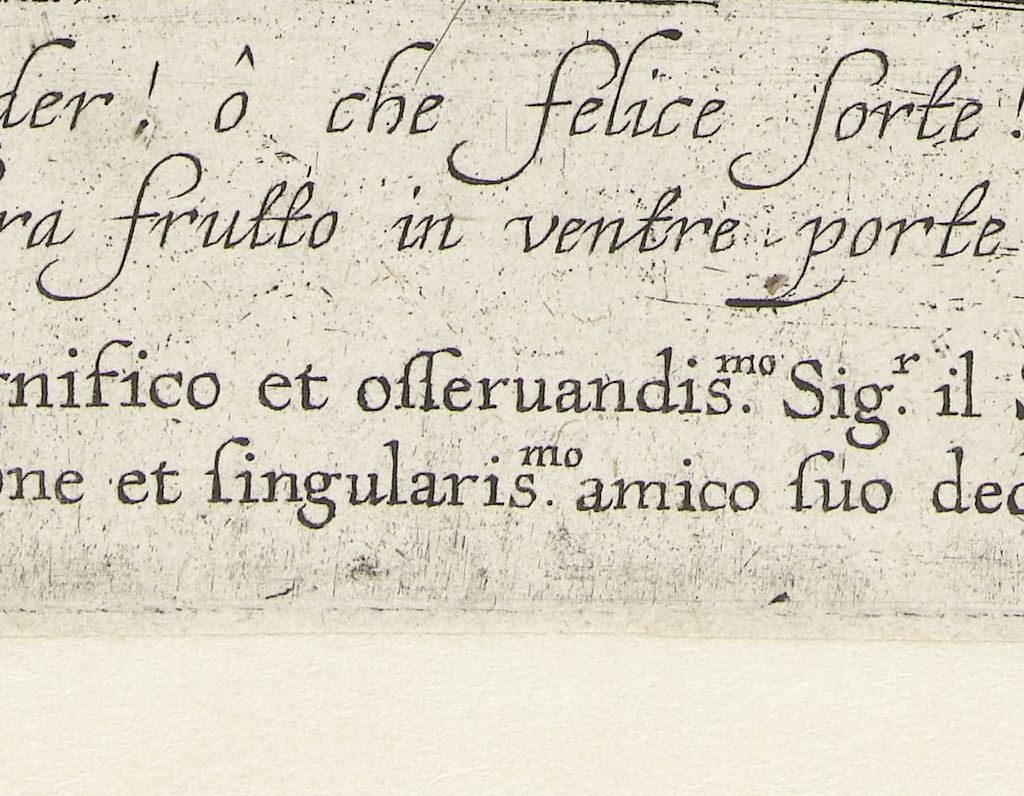 der! ô che felice ſorte!
ra frutto in ventre porte
nifico et oſſeruandis.mo Sig.r il S
ne et ſingularis.mo amico ſuo ded